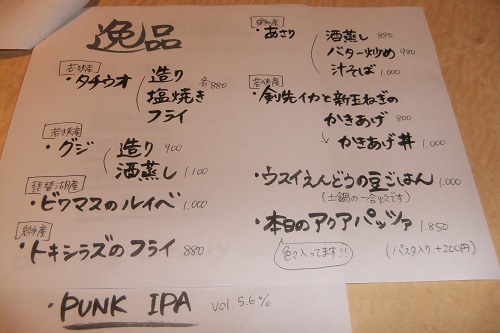 逸品
若狭産
・タチウオ
造り
塩焼き
フライ
各880
若狭産
・グジ
造り 900
酒蒸し 1.100
琵琶湖産
・ビワマスのルイベ 1.000
・トキシラズのフライ 880
・PUNK IPA vol.5.6%
・あさり
酒蒸し 880
バター炒め 980
汁そば 1.000
若狭産
・剣先イカと新玉ねぎの
かきあげ 800
↳ かきあげ丼 1.000
・ウスイえんどうの豆ごはん 1.000
(土鍋の一合炊です)
・本日のアクアパッツァ 1.850
色々入ってます!!
(パスタ入り +200円)